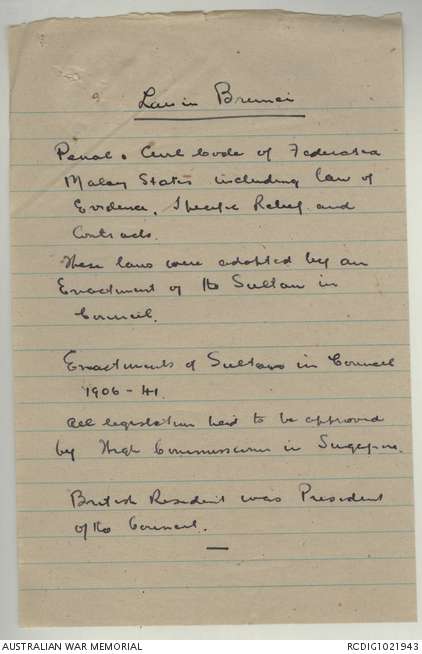 Law in Brunei
Penal & Civil Code of Federated
Malay States including law of
Evidence, Specific Relief and
Contracts.
These laws were adopted by an
Enactment of the Sultan in
Council.
Enactments of Sultans in Council
1906-41.
All legislation had to be approved
by High Commissioner in Singapore.
British Resident was President
of the Council.
AUSTRALIAN WAR MEMORIAL
RCDIG1021943